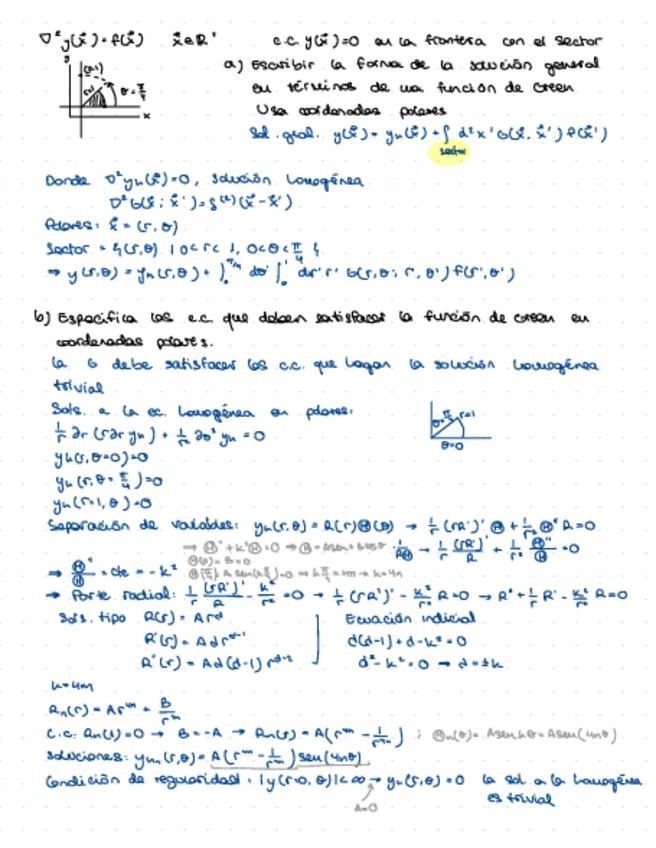 ∇²y(x⃗) = f(x⃗)   x⃗ ∈ R²   c.c. y(x⃗)=0 en la frontera con el sector
a) Escribir la forma de la solución general
en términos de una función de Green.
Usa coordenadas polares
(0,1)
θ = π/4
x
y
Sol. gral. y(x⃗) = yh(x⃗) + ∫ d²x' G(x⃗, x⃗') f(x⃗')
sector
Donde ∇²yh(x⃗)=0, solución homogénea
∇²G(x⃗; x⃗') = δ⁽²⁾(x⃗ - x⃗')
Polares: x⃗ = (r, θ)
Sector = {(r,θ) | 0<r<1, 0<θ<π/4}
⇒ y(r,θ) = yh(r,θ) + ∫₀^π/4 dθ' ∫₀¹ dr' r' G(r,θ; r',θ') f(r',θ')
b) Especifica las c.c. que deben satisfacer la función de Green en
coordenadas polares.
La G debe satisfacer las c.c. que hagan la solución homogénea
trivial
Sols. a la ec. homogénea en polares:
1/r ∂r (r∂r yh) + 1/r² ∂θ² yh = 0
θ=π/4 r=1
θ=0
yh(r, θ=0)=0
yh(r, θ=π/4)=0
yh(r=1, θ)=0
Separación de variables: yh(r,θ) = R(r)Θ(θ) → 1/r (rR')' Θ + 1/r² Θ'' R = 0
⇒ Θ'' + k²Θ = 0 ⇒ Θ = A sen kθ + B cos kθ   1/RΘ → 1/r (rR')'/R + 1/r² Θ''/Θ = 0
Θ(0) = B = 0
⇒ Θ''/Θ = cte = -k²   Θ(π/4) = A sen(kπ/4) = 0 ⇒ kπ/4 = nπ → k=4n
⇒ Parte radial: 1/r (rR')'/R - k²/r² = 0 → 1/r (rR')' - k²/r² R=0 → R'' + 1/r R' - k²/r² R=0
Sols. tipo R(r) = Ar^α   Ecuación indicial
R'(r) = Aαr^α-1   α(α-1) + α - k² = 0
R''(r) = Aα(α-1) r^α-2   α² - k² = 0 → α = ±k
k=4n
Rn(r) = Ar⁴ⁿ + B/r⁴ⁿ
c.c. Rn(1)=0 → B=-A → Rn(r) = A(r⁴ⁿ - 1/r⁴ⁿ) ; Θn(θ) = A sen kθ = A sen(4nθ)
Soluciones: yhn(r,θ) = A(r⁴ⁿ - 1/r⁴ⁿ) sen(4nθ)
Condición de regularidad: |y(r=0, θ)|<∞ → yh(r,θ) = 0   la sol. a la homogénea
A=0
es trivial